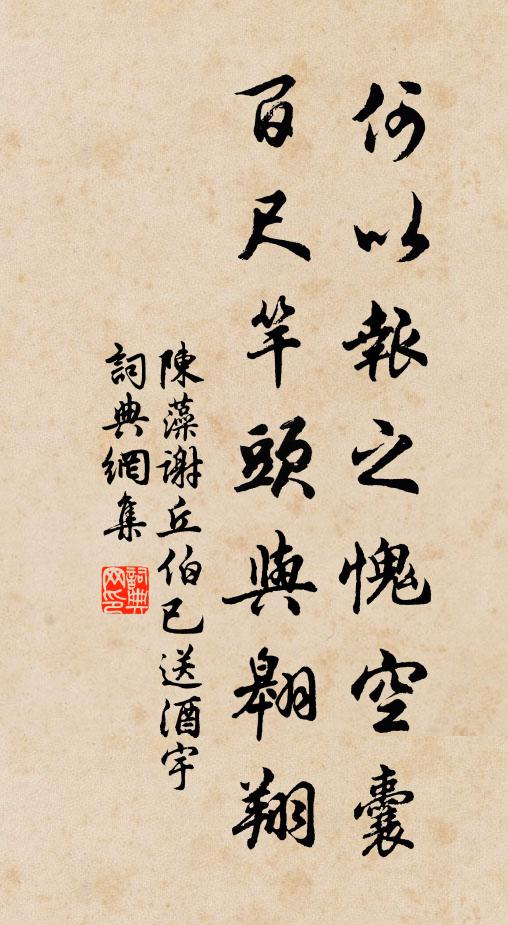 何以報之愧空囊
百尺竿頭與翱翔
陳藻謝丘伯已送酒字
詞典網集
詞典网印